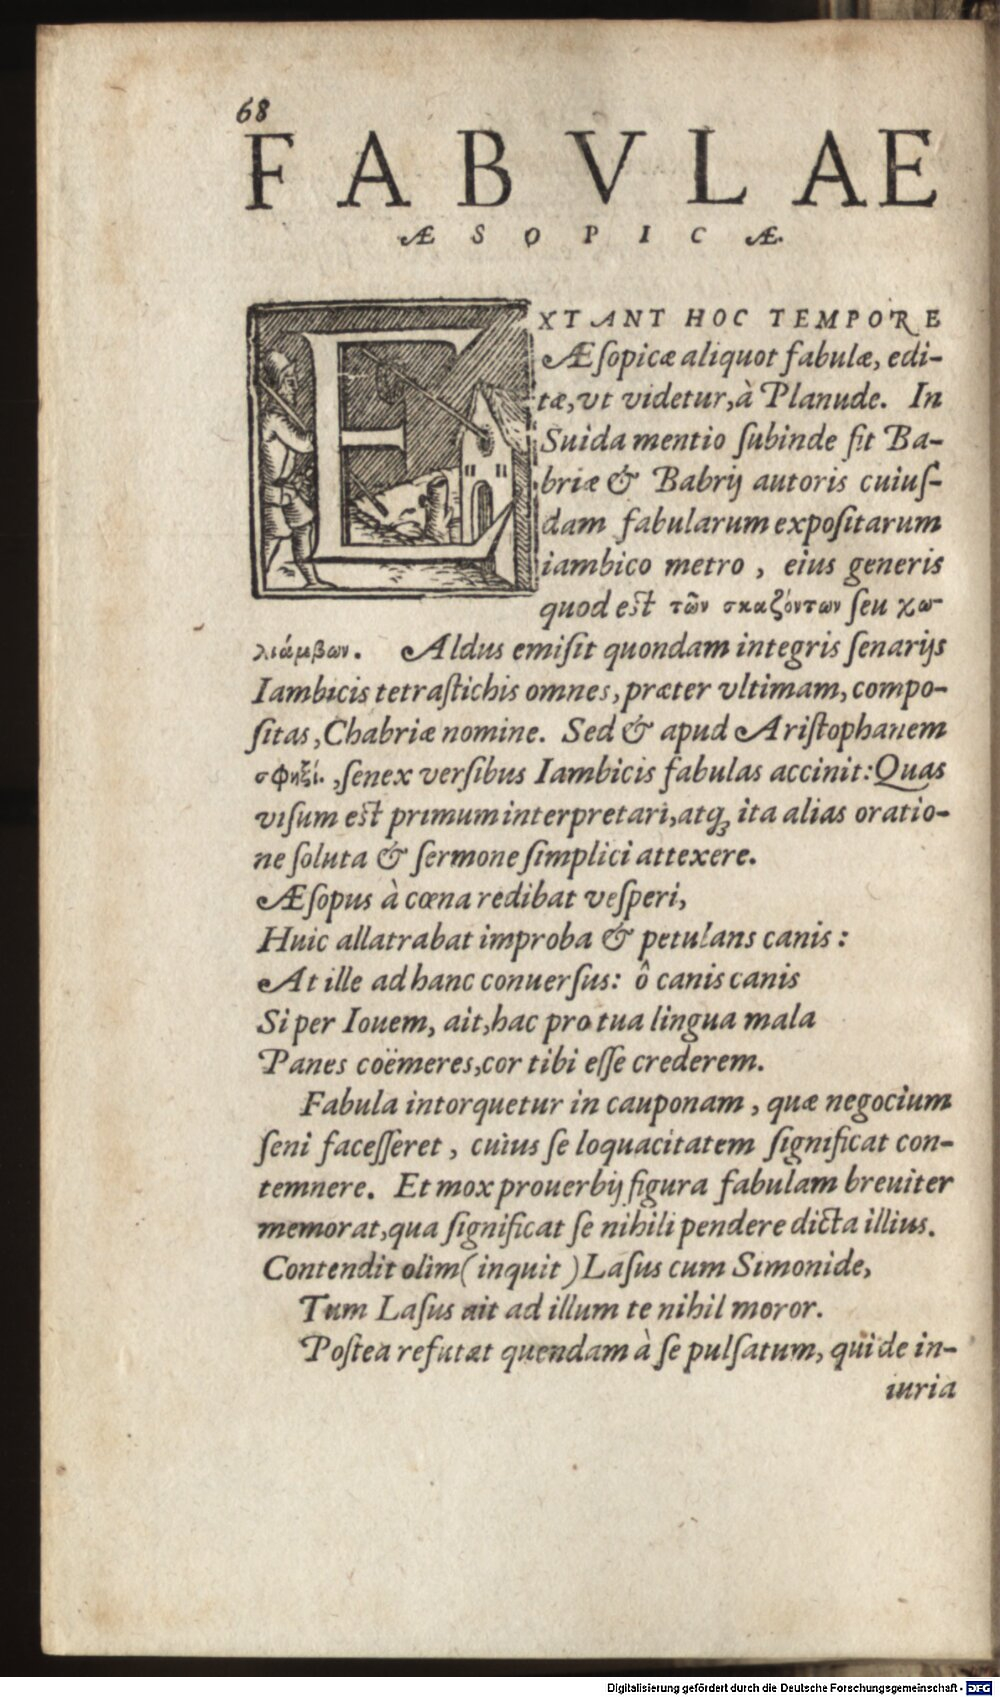 68
FABVLAE
ÆSOPICÆ.
EXTANT HOC TEMPORE
Æſopicæ aliquot fabulæ, edi-
tæ,vt videtur,à Planude. In
Suida mentio ſubinde fit Ba-
briæ & Babrij autoris cuiuſ-
dam fabularum expoſitarum
iambico metro , eius generis
quod est τῶν σκαζόντων ſeu χω-
λιάμβων. Aldus emiſit quondam integris ſenarijs
Iambicis tetraſtichis omnes, præter vltimam, compo-
ſitas, Chabriæ nomine. Sed & apud Ariſtophanem
σφηξί. ,ſenex verſibus Iambicis fabulas accinit: Quas
viſum est primum interpretari, atq; ita alias oratio-
ne ſoluta & ſermone ſimplici attexere.
Æſopus à cœna redibat veſperi,
Huic allatrabat improba & petulans canis :
At ille ad hanc conuerſus: ô canis canis
Si per Iouem, ait,hac pro tua lingua mala
Panes coëmeres,cor tibi eſſe crederem.
Fabula intorquetur in cauponam , quæ negocium
ſeni faceſſeret , cuius ſe loquacitatem ſignificat con-
temnere. Et mox prouerbij figura fabulam breuiter
memorat,qua ſignificat ſe nihili pendere dicta illius.
Contendit olim ( inquit ) Laſus cum Simonide,
Tum Laſus ait ad illum te nihil moror.
Poſtea refutat quendam à ſe pulſatum, qui de in-
iuria
Digitalisierung gefördert durch die Deutsche Forschungsgemeinschaft - DFG